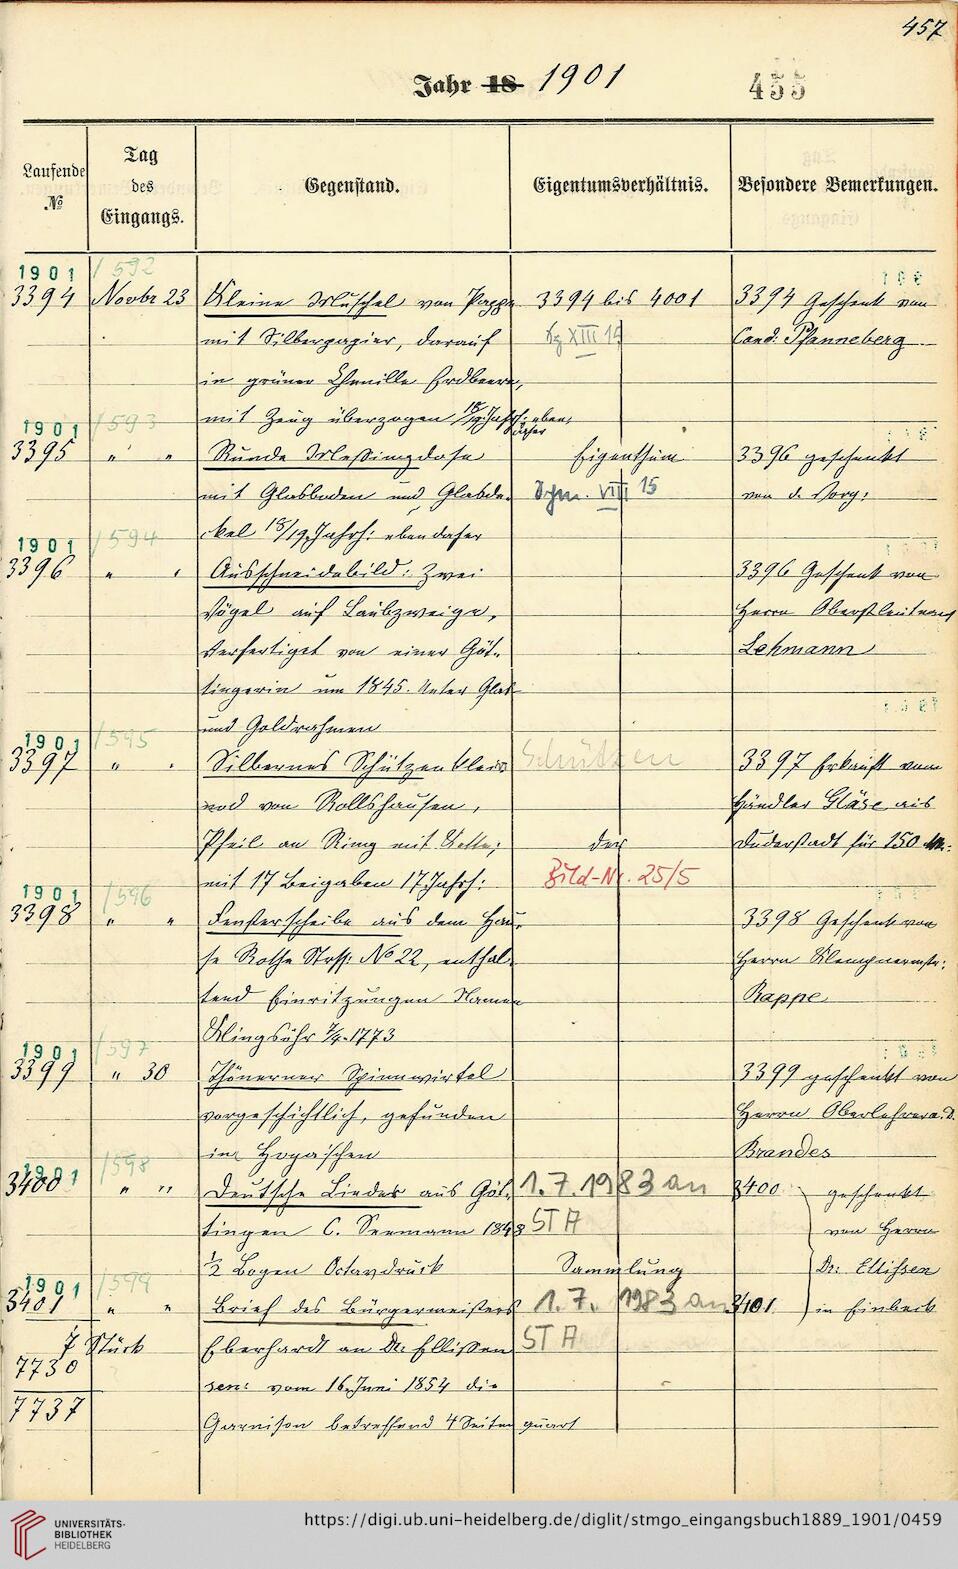 457
Jahr 18 1901
455
Laufende
No
Tag
des
Eingangs.
Gegenstand.
Eigentumsverhältnis.
Besondere Bemerkungen.
1901
3394
1592
Novbr 23
Kleine Muschel von Pappe
mit Silberpapier, darauf
in grüner Chenille Erdbeere,
mit Zeug überzogen 18/19. Jahrh: eben
daher
3394 bis 4001
XIII 15
3394 Geschenk von
Cand: Pfanneberg
1901
3395
1593
" "
Runde Messingdose
mit Glasboden und Glasde-
ckel 18/19. Jahrh: eben daher
Eigenthum
VIII 15
3396 geschenkt
von d. Vorg:
1901
3396
1594
" "
Ausschneidebild: Zwei
Vögel auf Laubzweige,
verfertiget von einer Göt-
tingerin um 1845. Unter Glas
und Goldrahmen
3396 Geschenk von
Herrn Oberstleutnant
Lehmann
1901
3397
1595
" "
Silbernes Schützenklei-
nod von Rollshausen,
Pfeil an Ring mit Kette,
mit 17 Beigaben 17. Jahrh:
Schützen
der
Bild-Nr. 25/5
3397 Erkauft vom
Händler Gläse aus
Duderstadt für 150 M:
1901
3398
1596
" "
Fensterscheibe aus dem Hau-
se Rothe Strss: No 22, enthal-
tend Einritzungen Namen
Klingsöhr 7/4. 1773
3398 Geschenk von
Herrn Klempnermstr:
Rappe
1901
3399
1597
" 30
Thönerner Spinnwirtel
vorgeschichtlich, gefunden
in
3399 geschenkt von
Herrn Oberlehrer a. D.
Brandes
1901
3400
1598
" "
Deutsche Lieder aus Göt-
tingen C. Seemann 1848
1/2 Bogen Octavdruck
1.7.1983 an
STA
Sammlung
3400
geschenkt
von Herrn
Dr: Ellissen
in Einbeck
1901
3401
1599
" "
Brief des Bürgermeisters
Eberhardt an Dr. Ellissen
sen: vom 16. Juni 1854 die
Garnison betreffend 4 Seiten quart
1.7. 1983 an
STA
3401
7 Stück
7730
7737
UNIVERSITÄTS-
BIBLIOTHEK
HEIDELBERG
https://digi.ub.uni-heidelberg.de/diglit/stmgo_eingangsbuch1889_1901/0459